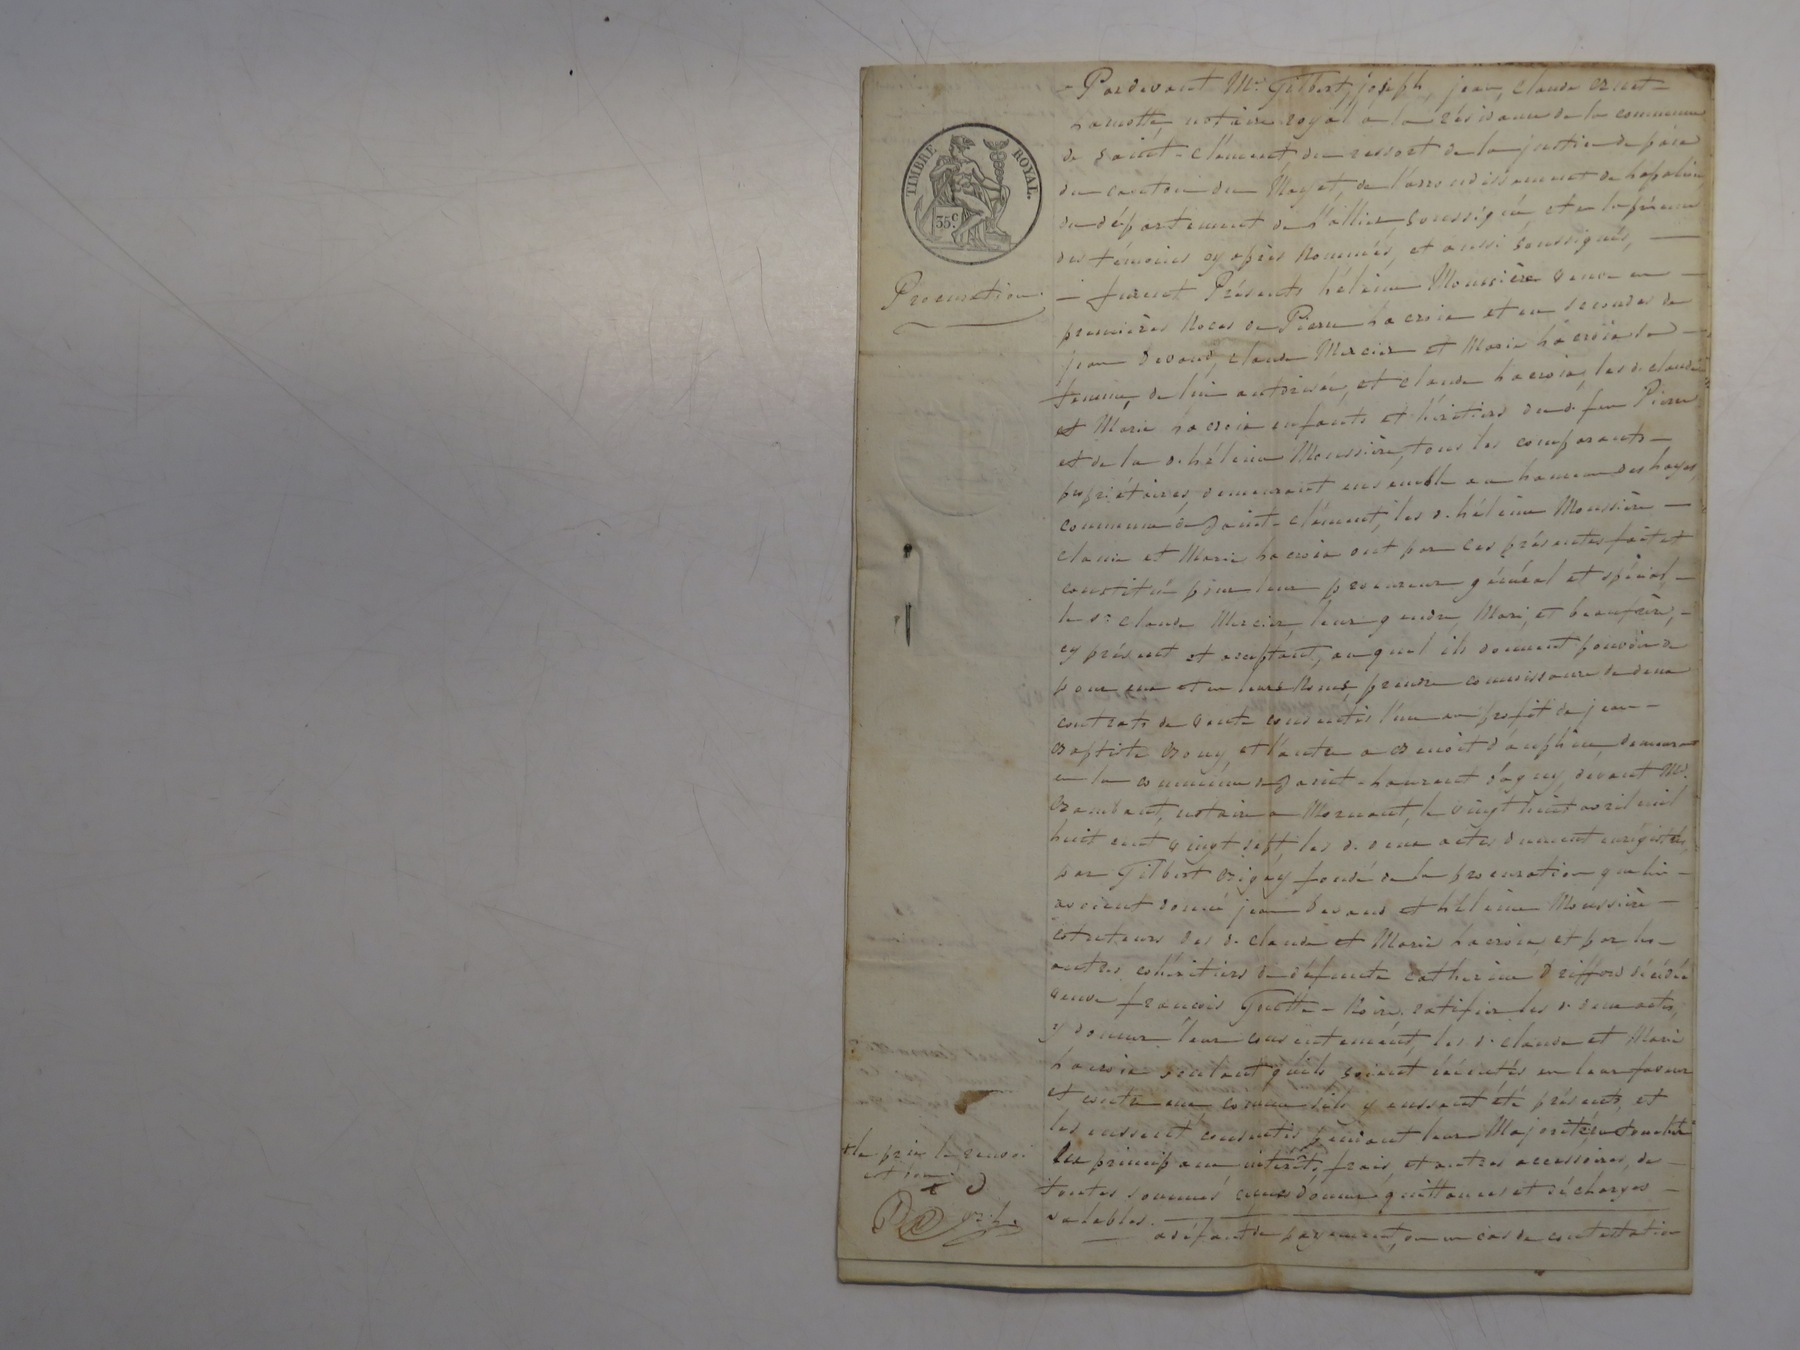 TIMBRE ROYAL.
35.c
Procuration.
Pardevant Mre. Gilbert, joseph, jean, claude
notaire royal a la résidence de la commune
de saint-clément, du ressort de la justice de paix
du canton du Mayet, de l'arrondissement de Lapalisse,
du département de l'allier soussigné, et en la présence
des témoins cy après nommés, et aussi soussignés,
furent Présents hélène Moussière veuve en
premières Noces de Pierre Lacroix et en secondes de
jean Devaud, claude Mercier et Marie Lacroix sa
femme, de lui autorisée, et claude Lacroix, les d. claude
et Marie Lacroix enfants et héritiers du d. feu Pierre
et de la d. hélène Moussière, tous les comparants
propriétaires, demeurant ensemble au hameau des hayes,
commune de Saint-clément, les d. hélène Moussière
claude et Marie Lacroix ont par ces présentes fait et
constitué pour leur procureur général et spécial
le sr. claude Mercier, leur gendre, Mari, et beaufrère,
cy présent et acceptant, auquel ils donnent pouvoir de
pour eux et en leurs Noms, prendre connoissance de deux
contrats de vente consentis l'un au profit de jean-
Baptiste Bony, et l'autre a Benoît dauphin demeurant
en la commune de Saint-Laurent d'agny, devant Me.
notaire a Mornant, le vingt huit avril mil
huit cent vingt sept, les d. deux actes dument enrégistrés,
par Gilbert fondé de la procuration que lui
avoient donné jean Devaud et hélène Moussière
cotuteurs des d. claude et Marie Lacroix, et par les
autres cohéritiers de défunte catherine décédée
veuve françois Goutte-Noire. ratifier les d. deux actes,
y donner leur consentement, les d. claude et Marie
Lacroix voulant qu'ils soient éxécutés en leur faveur
et contre eux comme s'ils y eussent été présents, et
les eussent consentis pendant leur Majorité,
les principaux intérêts, frais, et autres accessoires, de
toutes sommes donner quittances et décharges
valables.
a défaut de payement, ou en cas de contestation
+ le prix le renvoi
est bon